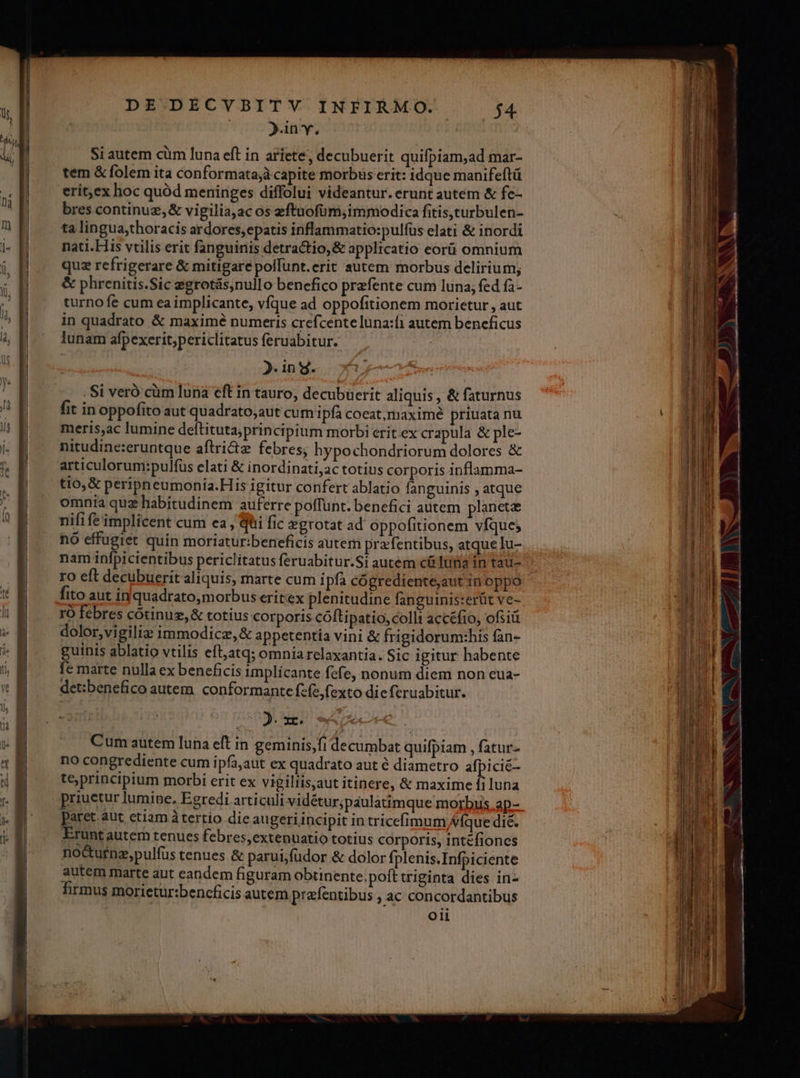 DE DECVBITV INFIRMO. 54
☽.in♈.
Si autem cùm luna eſt in ariete, decubuerit quiſpiam,ad mar-
tem & ſolem ita conformata,à capite morbus erit: idque manifeſtũ
erit,ex hoc quód meninges diſſolui videantur. erunt autem & fe-
bres continuæ,& vigilia,ac os æſtuoſum,immodica ſitis,turbulen-
ta lingua,thoracis ardores,epatis inflammatio:pulſus elati & inordi
nati.His vtilis erit ſanguinis detractio,& applicatio eorũ omnium
quæ refrigerare & mitigare poſſunt.erit autem morbus delirium,
& phrenitis.Sic ægrotás,nullo benefico præſente cum luna, ſed ſa-
turno ſe cum ea implicante, vſque ad oppoſitionem morietur, aut
in quadrato & maximè numeris creſcente luna:ſi autem beneficus
lunam aſpexerit,periclitatus ſeruabitur.
☽.in♉.
Si verò cùm luna eſt in tauro, decubuerit aliquis, & ſaturnus
fit in oppoſito aut quadrato,aut cum ipſa coeat,maximè priuata nu
meris,ac lumine deſtituta,principium morbi erit ex crapula & ple-
nitudine:eruntque aſtrictæ febres, hypochondriorum dolores &
articulorum:pulſus elati & inordinati,ac totius corporis inflamma-
tio,& peripneumonia.His igitur confert ablatio ſanguinis , atque
omnia quæ habitudinem auferre poſſunt. benefici autem planetæ
niſi ſe implicent cum ea, qui ſic ægrotat ad oppoſitionem vſque,
nó effugiet quin moriatur:beneficis autem præſentibus, atque lu-
nam inſpicientibus periclitatus ſeruabitur.Si autem cũ luna in tau-
ro eſt decubuerit aliquis, marte cum ipſa cógrediente,aut in oppo
ſito aut in quadrato,morbus erit ex plenitudine ſanguinis:erũt ve-
rò febres cótinuæ,& totius corporis cóſtipatio,colli accéſio, oſsiũ
dolor,vigiliæ immodicæ,& appetentia vini & frigidorum:his ſan-
guinis ablatio vtilis eſt,atq; omnia relaxantia. Sic igitur habente
ſe marte nulla ex beneficis implicante ſeſe, nonum diem non eua-
det:benefico autem conformante ſeſe,ſexto die ſeruabitur.
☽. ♊.
Cum autem luna eſt in geminis,ſi decumbat quiſpiam , ſatur-
no congrediente cum ipſa,aut ex quadrato aut è diametro aſpicié-
te,principium morbi erit ex vigiliis,aut itinere, & maxime ſi luna
priuetur lumine. Egredi articuli vidétur,paulatimque morbus ap-
paret aut etiam à tertio die augeri incipit in triceſimum vſque dié.
Erunt autem tenues febres,extenuatio totius corporis, intéſiones
nocturnæ,pulſus tenues & parui,ſudor & dolor ſplenis.Inſpiciente
autem marte aut eandem figuram obtinente.poſt triginta dies in-
firmus morietur:beneficis autem præſentibus , ac concordantibus
oii